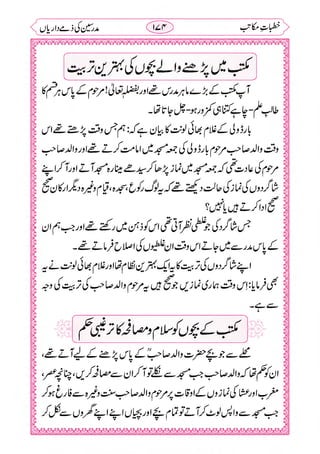 خطباتِ مکاتب ۱۷۴ مدرسین کی ذمے داریاں
مکتب میں پڑھنے والے بچوں کی بہترین تربیت
آپ کے مکتب کے بڑے ماہر مدرس تھے اور بفضلہٖ تعالیٰ! مرحوم کے پاس ہر قسم کا
طالبِ علم – چاہے کتنا ہی کمزور ہو – چل جاتا تھا۔
بارڈولی کے غلام بھائی لونت کا بیان ہے کہ: ہم جس وقت پڑھتے تھے اس
وقت والد صاحب مرحوم بارڈولی کی جمعہ مسجد میں امامت کرتے تھے اور والد صاحب
مرحوم کی عادت تھی کہ جمعہ مسجد میں نماز پڑھا کر سیدھے مینارہ مسجد آتے اور آکر اپنے
شاگردوں کی نماز کی حالت دیکھتے تھے کہ یہ لوگ رکوع، سجدہ، قیام وغیرہ دیگر ارکان صحیح
صحیح ادا کرتے ہیں یا نہیں؟
جس شاگرد کی جو غلطی نظر آتی تھی اس کو ذہن میں رکھتے تھے اور جب ہم ان
کے پاس مدرسے میں جاتے اس وقت ان غلطیوں کی اصلاح فرماتے تھے۔
اپنے شاگردوں کی تربیت کا یہ ایک بہترین نظام تھا اور غلام بھائی لونت نے یہ
بھی فرمایا: اس وقت ہماری نمازیں جو صحیح ہیں یہ مرحوم والد صاحب کی تربیت ہی کی وجہ
سے ہے۔
مکتب کے بچوں کو سلام و مصافحہ کا ترغیبی حکم
محلے سے جو بچے حضرت والد صاحبؒ کے پاس پڑھنے کے لیے آتے تھے،
ان کو حکم تھا کہ والد صاحب جب مسجد سے نکلے تو آکر ان سے مصافحہ کریں، چنانچہ عصر،
مغرب اور عشا کی نمازوں کے اوقات پر مرحوم والد صاحب سنت وغیرہ سے فارغ ہوکر
جب مسجد سے واپس لوٹ کر آتے تو تمام بچے اور بچیاں اپنے اپنے گھروں سے نکل کر